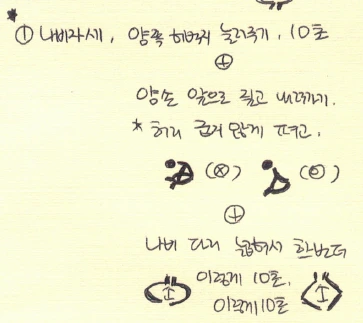 * ① 나비자세, 양쪽 허벅지 눌러주기, 10초
⊕
양손 앞으로 짚고 내려가기.
* 허리 굽지 않게 펴고.
(⊗) (⊙)
⊕
나비 다리 넓혀서 한번더
이렇게 10초.
이렇게 10초